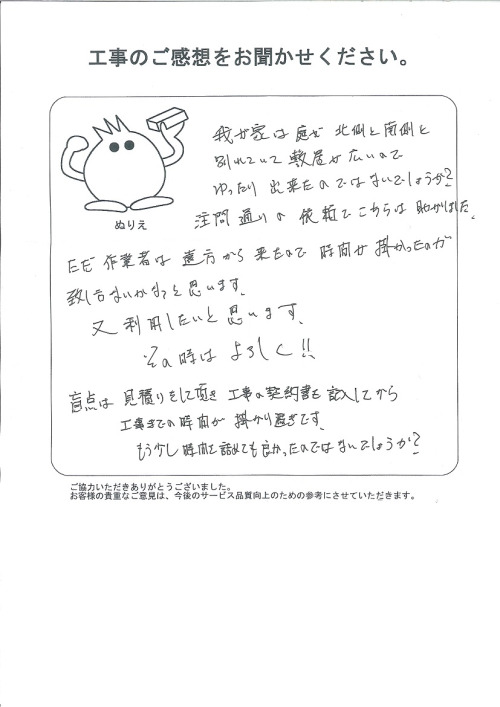 工事のご感想をお聞かせください。
ぬりえ
我が家は庭が北側と南側と
別れていて敷居が広いので
ゆったり出来たのではないでしょうか?
注問通りの依頼でこちらは助かりました。
ただ作業者は遠方から来たので時間が掛かったのが
致し方ないかなっと思います。
又利用したいと思います。
その時はよろしく!!
盲点は見積りをして頂き工事の契約書を記入してから
工事までの時間が掛かり過ぎです。
もう少し時間を詰めても良かったのではないでしょうか?
ご協力いただきありがとうございました。
お客様の貴重なご意見は、今後のサービス品質向上のための参考にさせていただきます。